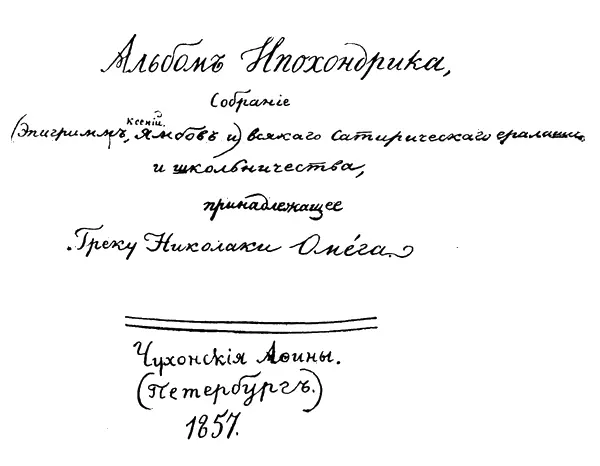 Альбомъ Ипохондрика,
Собраніе
Ксеній,
(Эпиграммъ, Ямбовъ и) всякаго сатирическаго ералаша
и школьничества,
принадлежащее
Греку Николаки Омéга.
Чухонскія Аѳины.
(Петербургъ.)
1857.